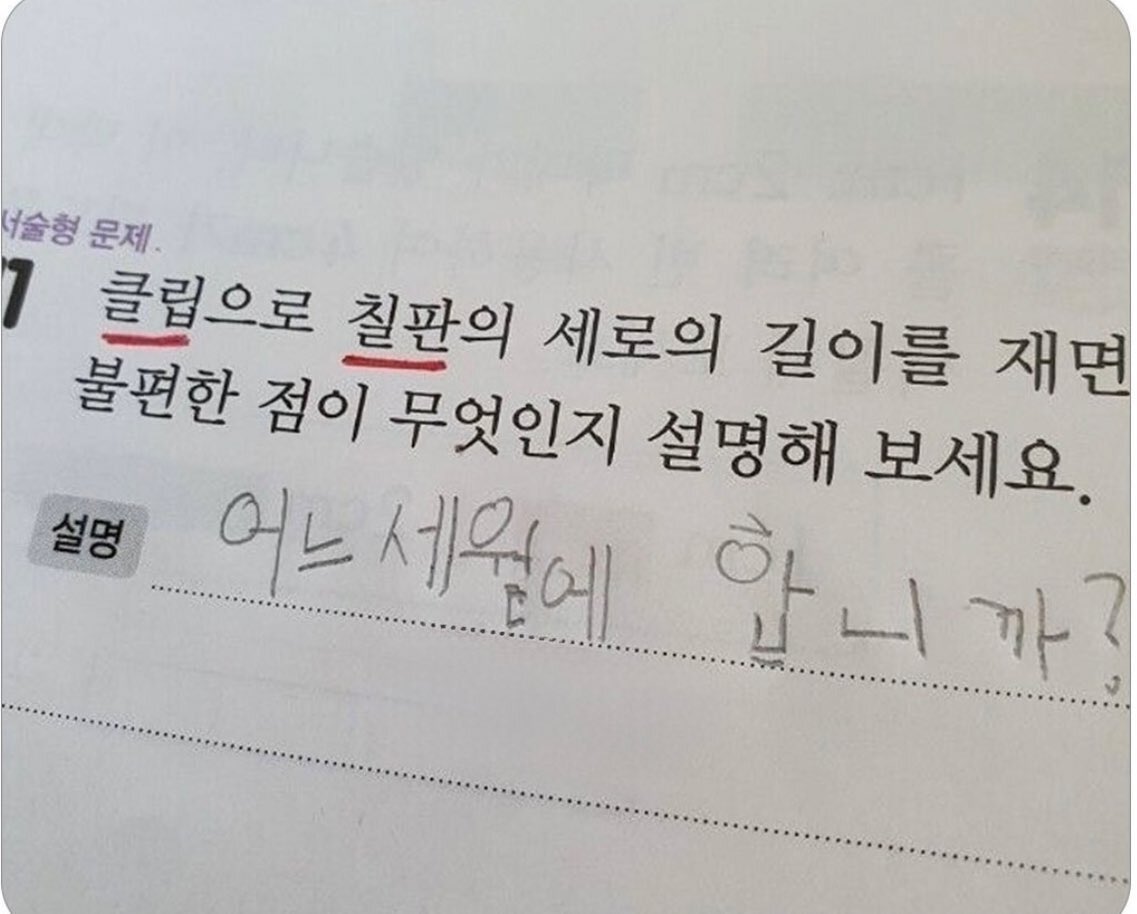 서술형 문제.
1 클립으로 칠판의 세로의 길이를 재면
불편한 점이 무엇인지 설명해 보세요.
설명 어느세월에 합니까?